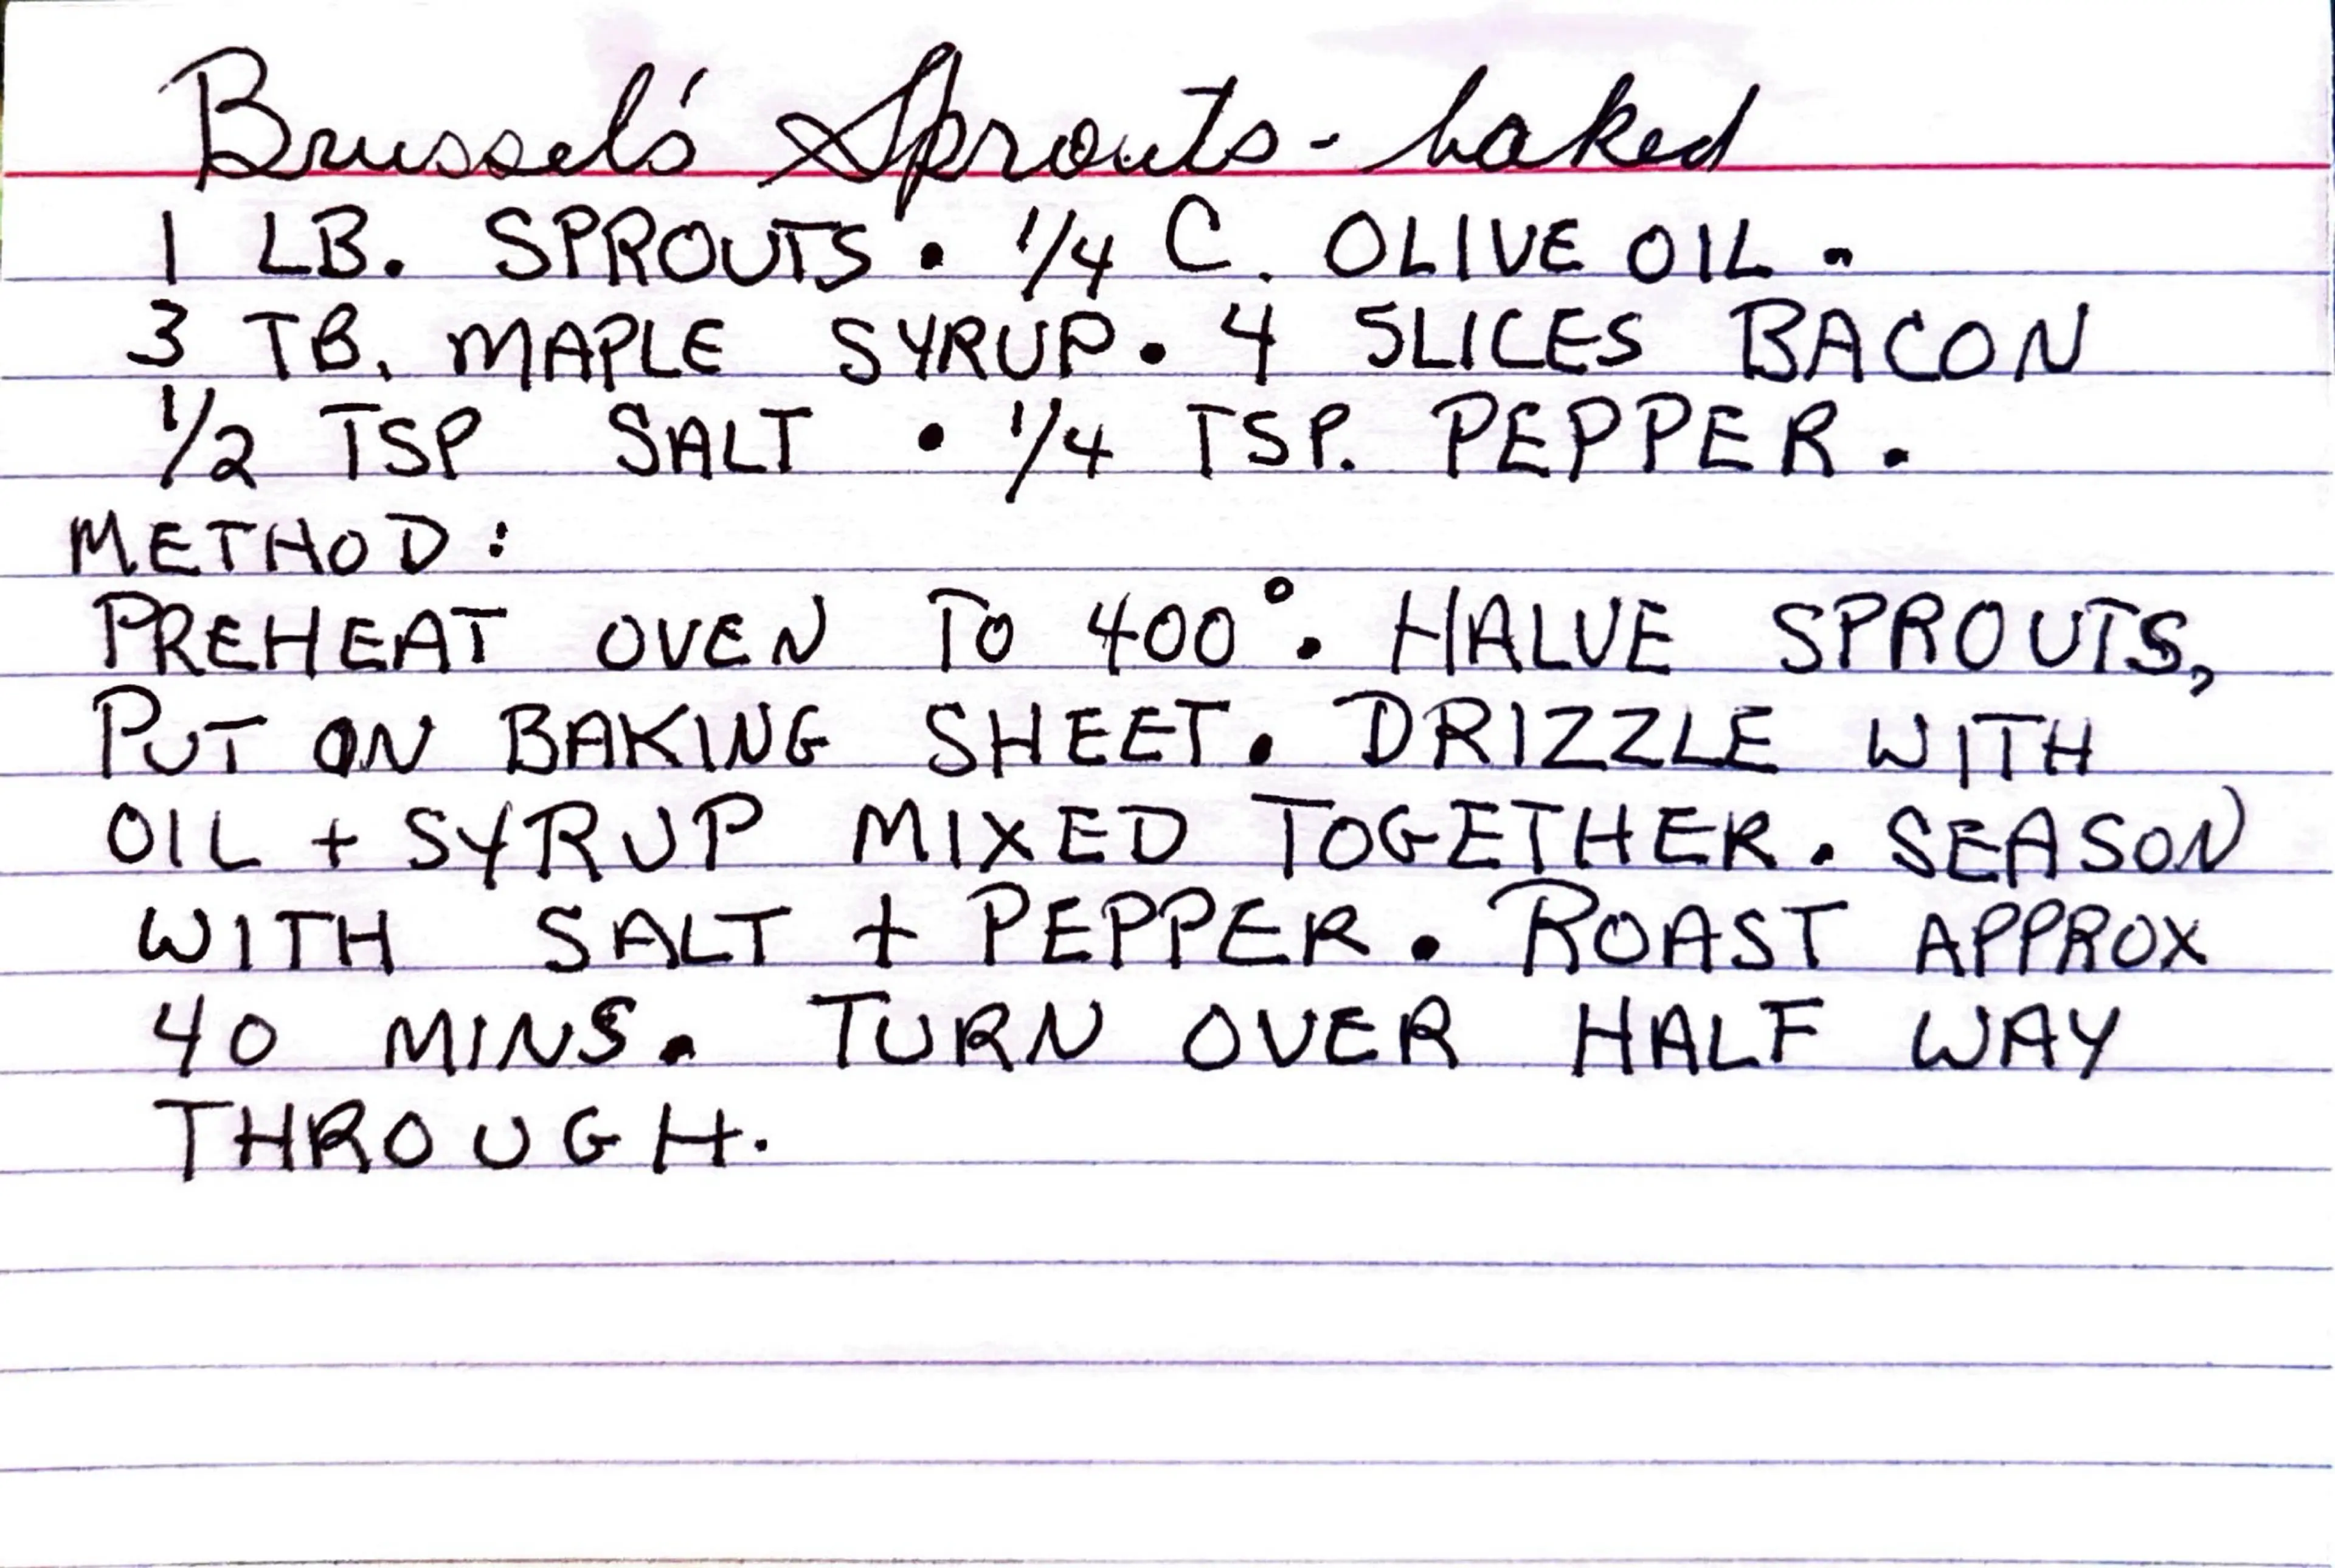 Brussel's Sprouts - baked
1 LB. SPROUTS • 1/4 C. OLIVE OIL •
3 TB. MAPLE SYRUP • 4 SLICES BACON
1/2 TSP SALT • 1/4 TSP. PEPPER.
METHOD:
PREHEAT OVEN TO 400°. HALVE SPROUTS,
PUT ON BAKING SHEET. DRIZZLE WITH
OIL + SYRUP MIXED TOGETHER. SEASON
WITH SALT + PEPPER. ROAST APPROX
40 MINS. TURN OVER HALF WAY
THROUGH.